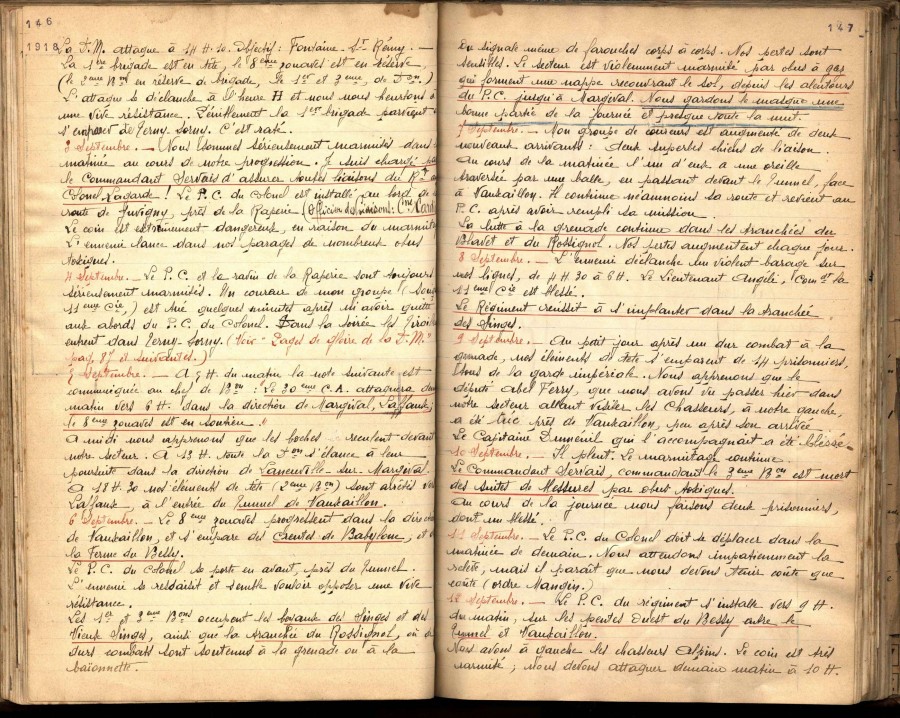 146
1918
La D.M. attaque à 14 H. 10. Objectif : Fontaine-St-Rémy. —
La 1ère brigade est en tête, le 8ème zouaves est en réserve,
(le 3ème Bon en réserve de brigade, le 1er et 2ème, de Don.)
L'attaque se déclanche à l'heure H et nous nous heurtons à
une vive résistance. Péniblement la 1ère brigade parvient
s'emparer de Terny-Sorny. C'est raté.
3 Septembre. — Nous sommes sérieusement marmités dans
matinée au cours de notre progression. Je suis chargé par
le Commandant Servais d'assurer toutes liaisons du Rt
Colonel Lagarde ! Le P.C. du Colonel est installé au bord de
route de Juvigny, près de la Raperie (Officier de liaison : Cne
Le coin est extrêmement dangereux, en raison du marmita
L'ennemi lance dans nos parages de nombreux obus
toxiques.
4 Septembre. — Le P.C. et le ravin de la Raperie sont toujours
sérieusement marmités. Un coureur de mon groupe (
11ème Cie,) est tué quelques minutes après m'avoir quitté
aux abords du P.C. du Colonel. Dans la soirée les Tiraill
entrent dans Terny-Sorny. (Voir "Pages de gloire de la D.M."
pag. 87 et suivantes.)
5 Septembre. — A 9 H. du matin la note suivante est
communiquée au chef de Bon : "Le 30ème C.A. attaquera
matin vers 6 H. dans la direction de Margival, Laffaux ;
le 8ème zouaves est en soutien."
A midi nous apprenons que les boches reculent devant
notre secteur. A 13 H. toute la Don s'élance à leur
poursuite dans la direction de Laneuville-sur-Margival.
A 18 H. 30 nos éléments de tête (2ème Bon) sont arrêtés vers
Laffaux, à l'entrée du Tunnel de Vauxaillon.
6 Septembre. — Le 8ème zouaves progressent dans la direc
de Vauxaillon, et s'empare des Creutes de Babylone, et
la Ferme du Bessy.
Le P.C. du Colonel se porte en avant, près du tunnel.
L'ennemi se raidit et semble vouloir opposer une vive
résistance.
Les 1er et 3ème Bons occupent les boyaux des Singes et des
Vieux Singes, ainsi que la tranchée du Rossignol, où
durs combats sont soutenus à la grenade ou à la
baïonnette. —
147
On signale même de farouches corps à corps. Nos pertes sont
sensibles. Le secteur est violemment marmité par obus à gaz
qui forment une nappe recouvrant le sol, depuis les alentours
du P.C. jusqu'à Margival. Nous gardons le masque une
bonne partie de la journée et presque toute la nuit.
7 Septembre. — Mon groupe de coureurs est augmenté de deux
nouveaux arrivants : deux superbes chiens de liaison.
Au cours de la matinée l'un d'eux a une oreille
traversée par une balle, en passant devant le Tunnel, face
à Vauxaillon. Il continue néanmoins sa route et revient au
P.C. après avoir rempli sa mission.
La lutte à la grenade continue dans les tranchées du
Blavet et du Rossignol. Nos pertes augmentent chaque jour.
8 Septembre. — L'ennemi déclanche un violent barage sur
nos lignes, de 4 H. 30 à 6 H. Le Lieutenant Angéli, Comdt la
11ème Cie est blessé.
Le Régiment réussit à s'implanter dans la tranchée
des Singes.
9 Septembre. — Au petit jour après un dur combat à la
grenade, nos éléments de tête s'emparent de 14 prisonniers,
tous de la garde impériale. Nous apprenons que le
député Abel Ferry, que nous avons vu passer hier dans
notre secteur allant visiter les Chasseurs, à notre gauche,
a été tué près de Vauxaillon, peu après son arrivée.
Le Capitaine Dumeuil qui l'accompagnait a été blessé.
10 Septembre. — Il pleut. Le marmitage continue.
Le Commandant Servais, commandant le 3ème Bon est mort
des suites de blessures par obus toxiques.
Au cours de la journée nous faisons deux prisonniers,
dont un blessé.
11 Septembre. — Le P.C. du Colonel doit se déplacer dans la
matinée de demain. Nous attendons impatiemment la
relève, mais il paraît que nous devons tenir coûte que
coûte (ordre Mangin.)
12 Septembre. — Le P.C. du régiment s'installe vers 9 H.
du matin, sur les pentes Ouest du Bessy entre le
Tunnel et Vauxaillon.
Nous avons à gauche les chasseurs alpins. Le coin est très
marmité ; nous devons attaquer demain matin à 10 H.